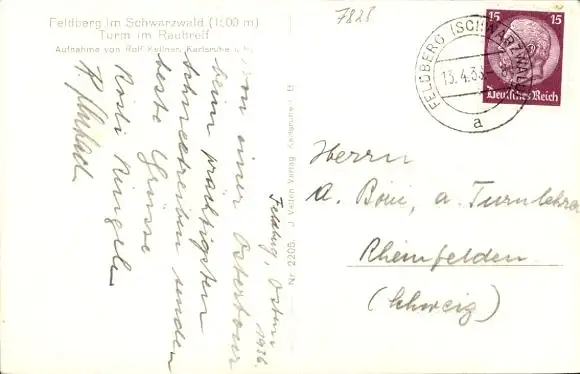 Feldberg im Schwarzwald (1500 m)
Turm im Rauhreif
Aufnahme von Rolf Kellner, Karlsruhe i. B.
7828
FELDBERG (SCHWARZWALD)
13.4.36
a
15 15
Deutsches Reich
Feldberg, Ostern 1936.
Von einer Ostertour
beim prächtigsten
Schneetreiben senden
beste Grüsse
Rösli
Nr. 2205 J. Velten Verlag Karlsruhe i. B
Herrn
A. a. Turnlehrer
Rheinfelden
(Schweiz)